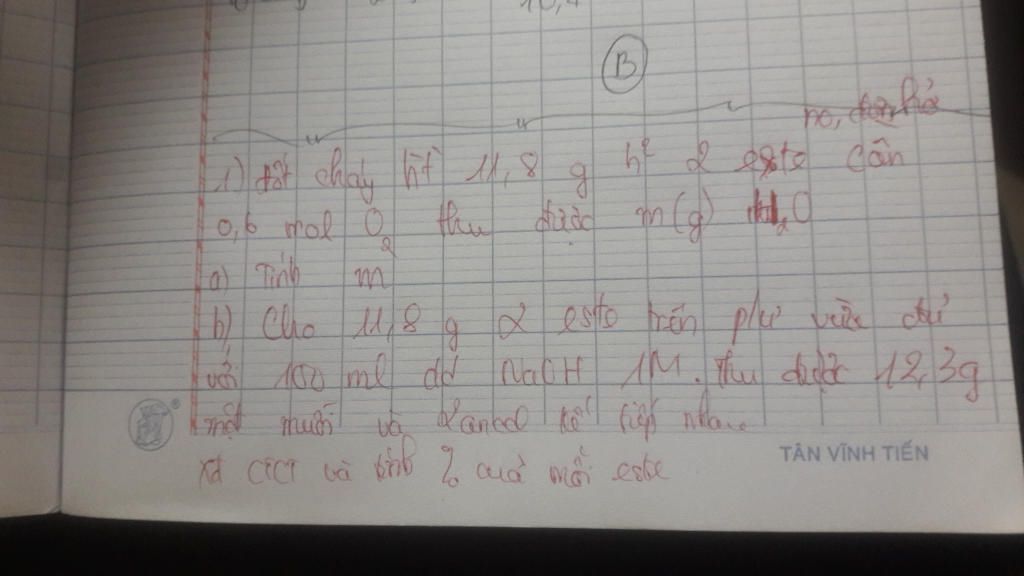 B
no, đơn hở
1) đốt cháy hết 11,8 g h² 2 este cần
0,6 mol O2 thu được m(g) H2O
a) Tính m
b) Cho 11,8 g 2 este trên pứ vừa đủ
với 100 ml dd NaOH 1M. Thu được 12,3g
một muối và 2 ancol kế tiếp nhau.
Xđ CTCT và tính % của mỗi este
TÂN VĨNH TIẾN